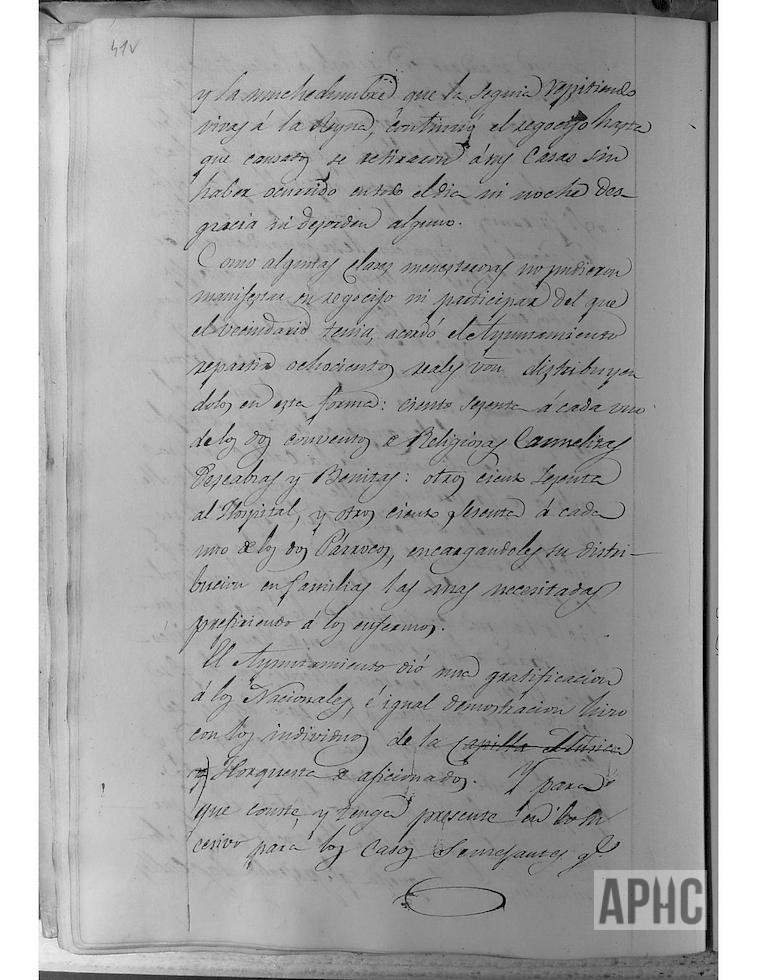 41v
y la muchedumbre que la seguia repitiendo
vivas á la Reyna, continuó el regocijo hasta
que cansados se retiraron á sus casas sin
haber ocurrido en todo el dia ni noche des-
gracia ni desorden alguno.
Como algunas clases menesterosas no pudieron
manifestar su regocijo ni participar del que
el vecindario tenia, acordó el Ayuntamiento
repartir ochocientos reales von distribuyen
dolos en esta forma: ciento sesenta á cada uno
de los dos conventos de Religiosas Carmelitas
Descalzas y Benitas: otros ciento sesenta
al Hospital, y otros ciento sesenta á cada
uno de los dos Párrocos, encargandoles su distri-
bucion en familias las mas necesitadas
prefiriendo á los enfermos.
El Ayuntamiento dió una gratificacion
á los Nacionales, é igual demostracion hizo
con los individuos de la capilla Musica
y Horquesta de aficionados. Y para
que conste, y tenga presente en lo su
cesivo para los casos semejantes
APHC